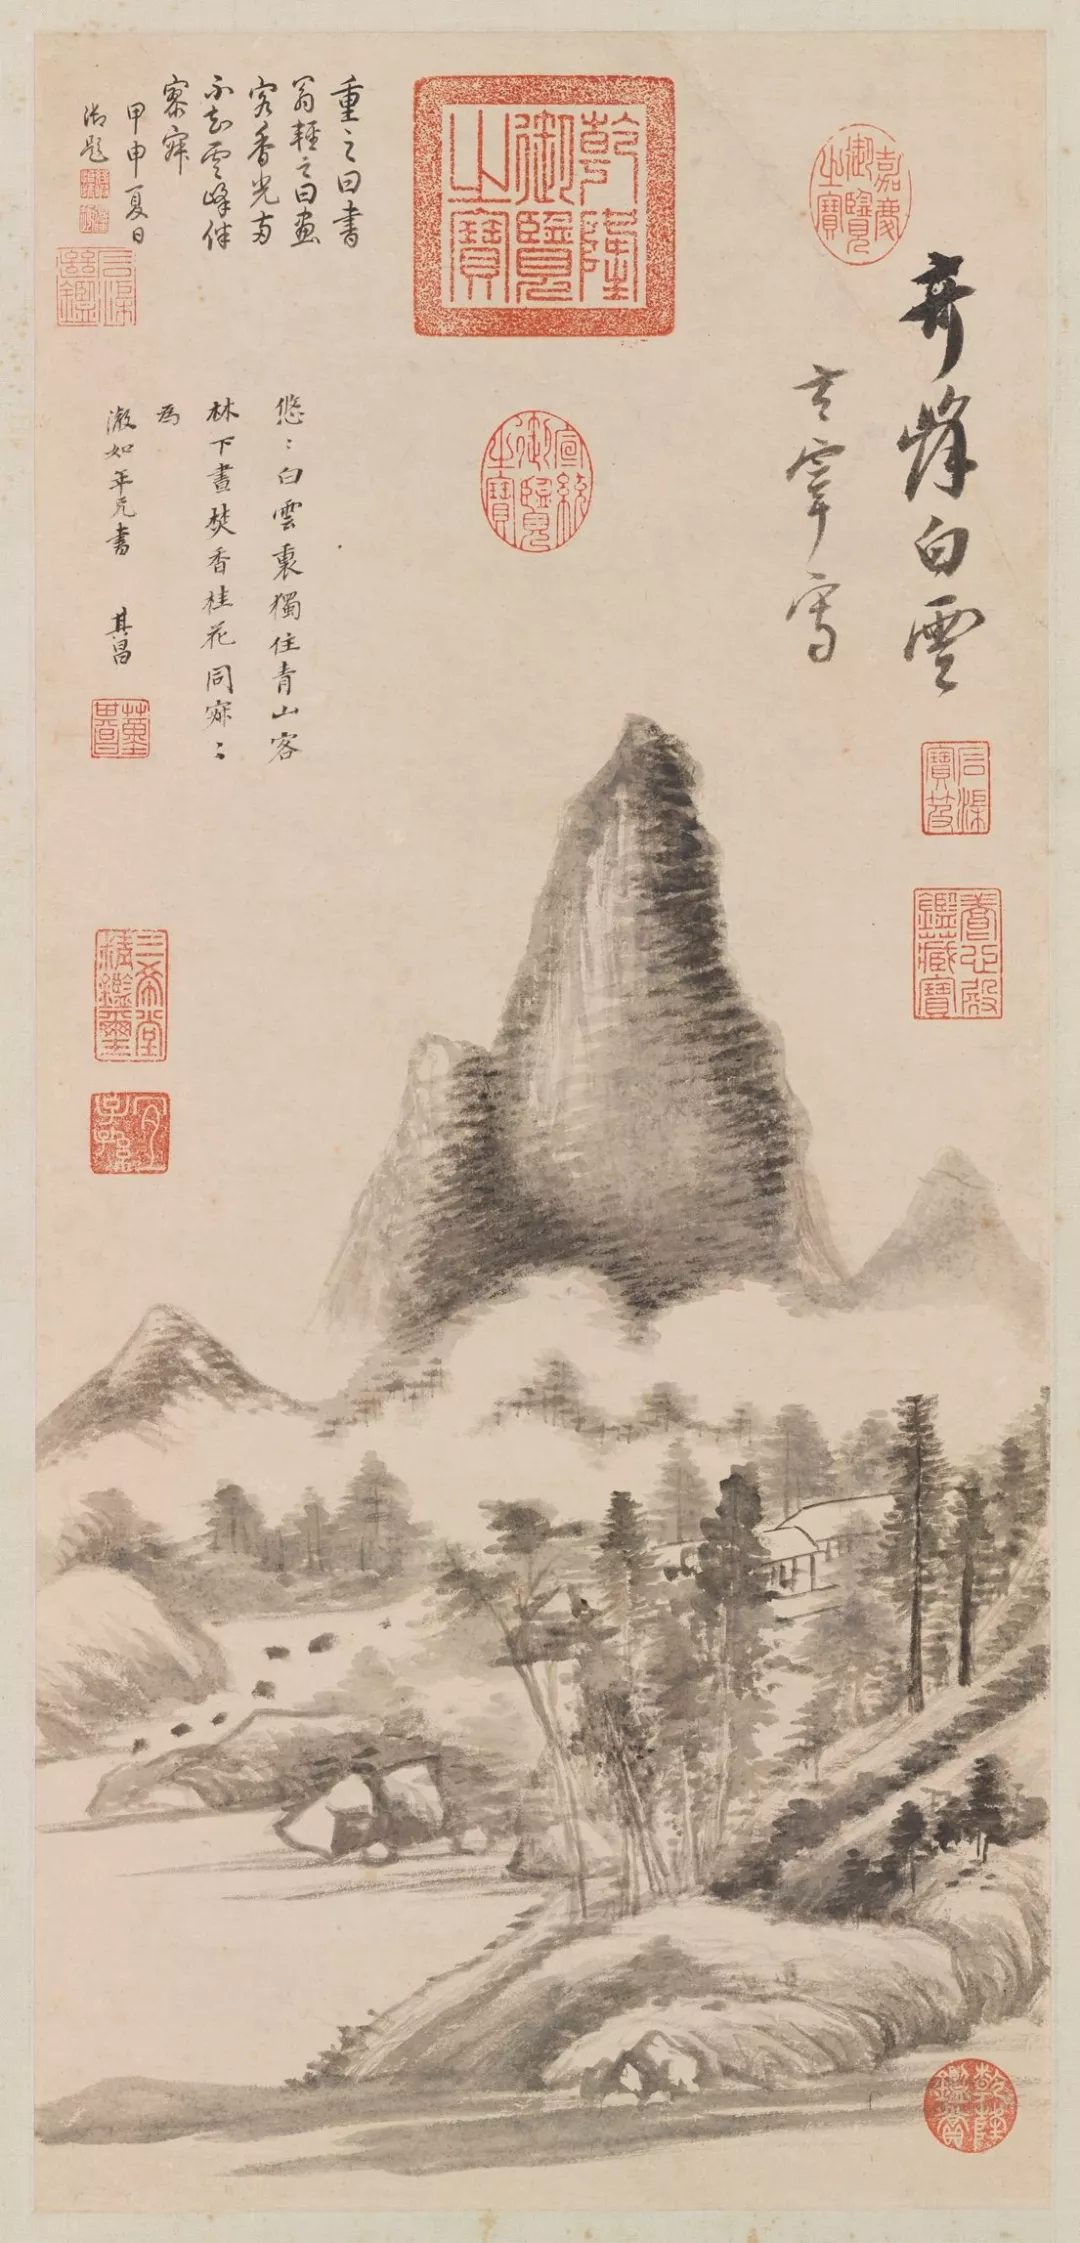 奇峰白雲
玄宰寫
重之曰書
翁輕之曰畫
客香光與
不知雲峰伴
寂寞
甲申夏日
御題
悠〻白雲裏獨住青山客
林下晝焚香桂花同寂〻
為
澂如年兄書 其昌
乾隆御覽之寶
嘉慶御覽之寶
宣統御覽之寶
石渠寶笈
養心殿鑑藏寶
三希堂精鑑璽
宜子孫
乾隆鑑賞
石渠定鑑
董其昌